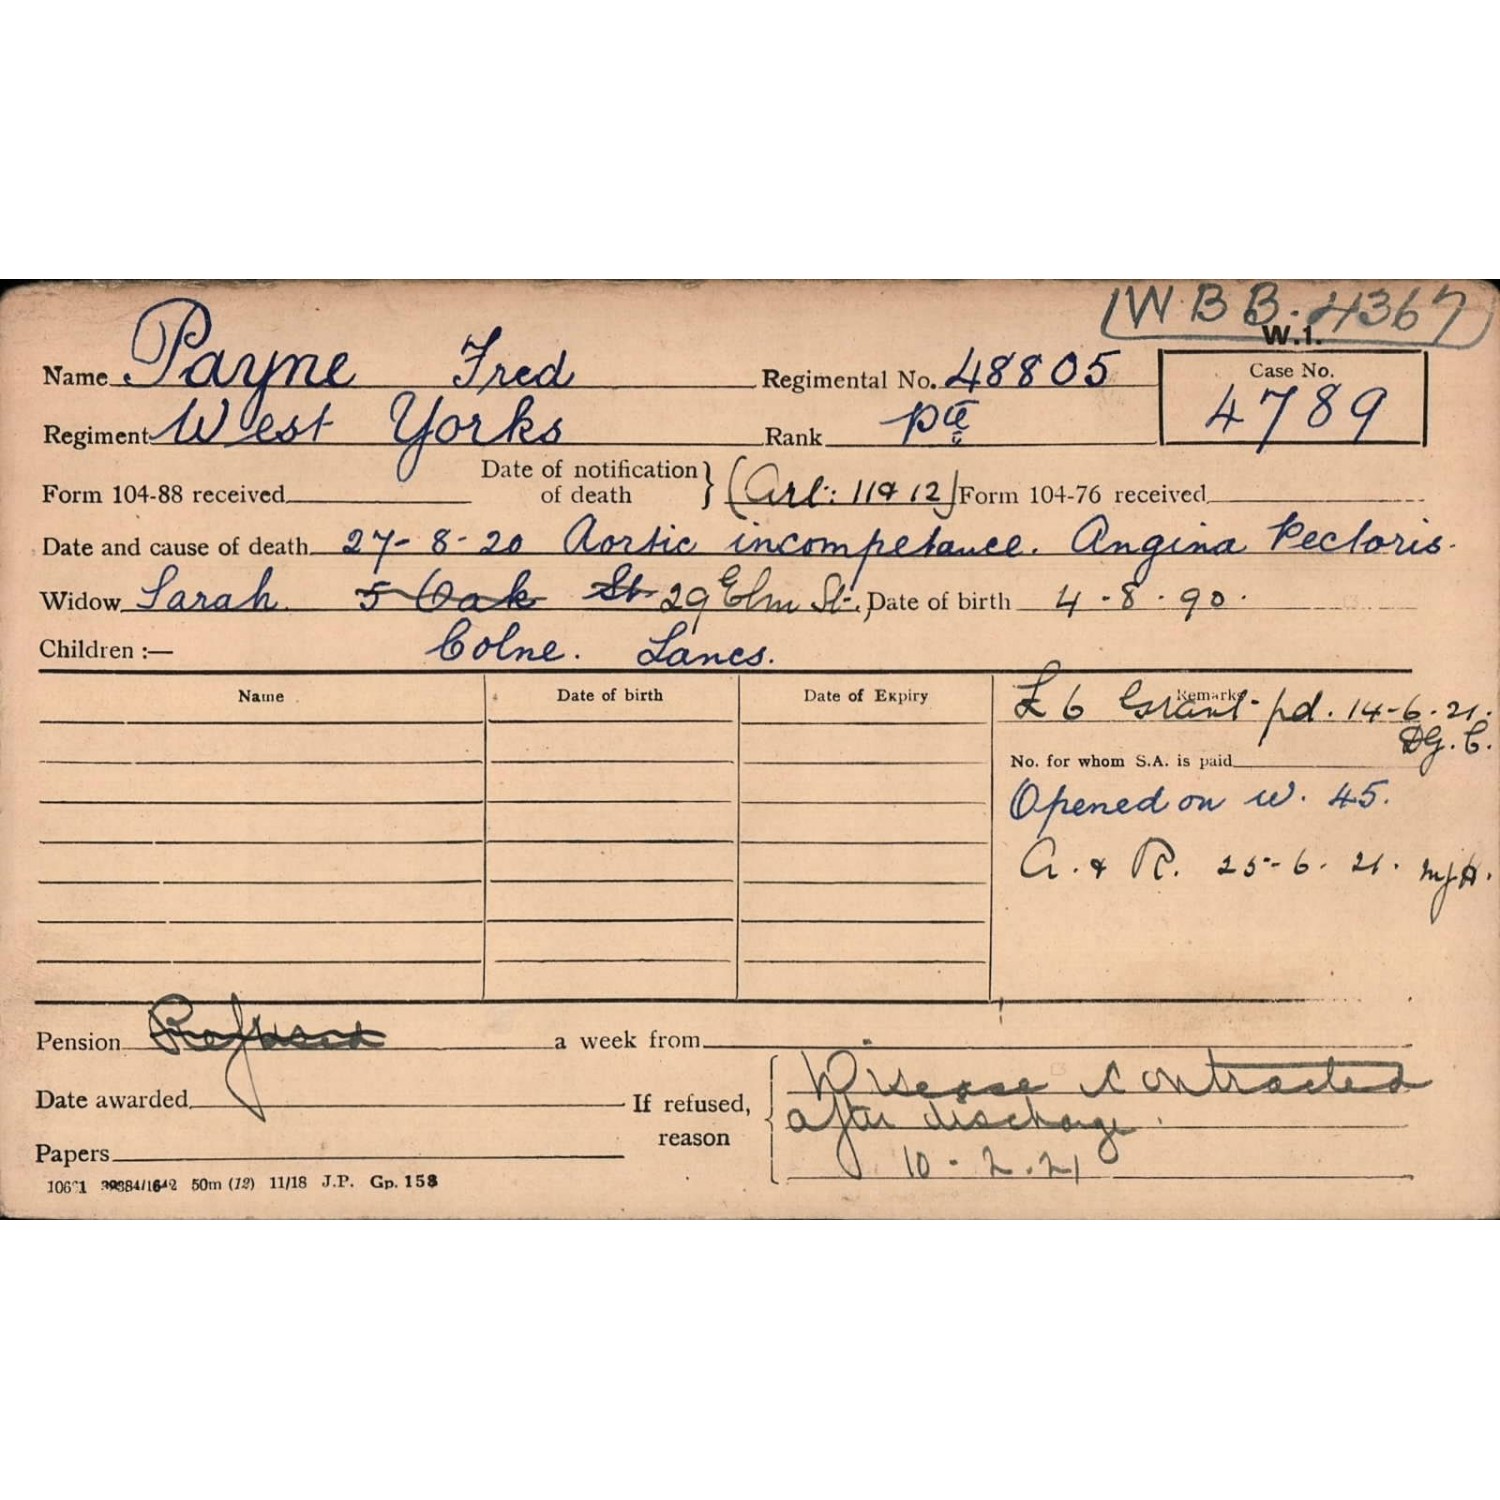 W.B.B. 4367
W.1.
Name Payne Fred Regimental No. 48805 Case No.
4789
Regiment West Yorks Rank pte
Form 104-88 received Date of notification of death } (Arl: 11 & 12) Form 104-76 received
Date and cause of death 27-8-20 Aortic incompetance. Angina Pectoris.
Widow Sarah 5 Oak St 29 Elm St., Date of birth 4-8-90.
Children :— Colne. Lancs.
Name Date of birth Date of Expiry Remarks
£6 Grant pd. 14-6-21.
DG.C.
No. for whom S.A. is paid
Opened on w. 45.
A. & R. 25-6-21. MJH.
Pension Refused a week from
Date awarded If refused, reason { Disease contracted
after discharge.
Papers 10-2.21
50m (12) 11/18 J.P. Gp. 153